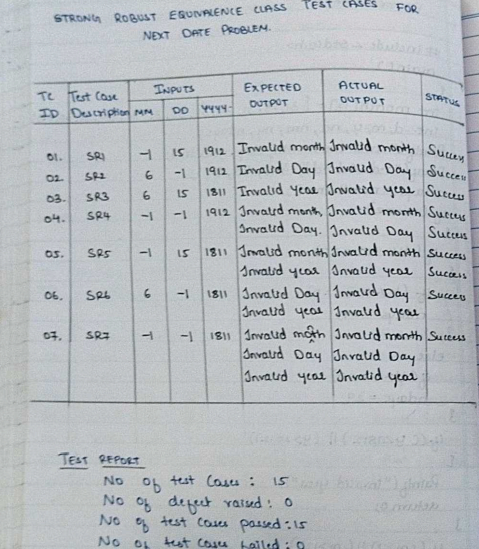 STRONG ROBUST EQUIVALENCE CLASS TEST CASES FOR
NEXT DATE PROBLEM.
TC ID Test Case Description INPUTS MM DD YYYY EXPECTED OUTPUT ACTUAL OUTPUT STATUS
01. SR1 -1 15 1912 Invalid month Invalid month Success
02 SR2 6 -1 1912 Invalid Day Invalid Day Success
03. SR3 6 15 1811 Invalid Year Invalid year Success
04. SR4 -1 -1 1912 Invalid month, Invalid month Success
Invalid Day. Invalid Day Success
05. SR5 -1 15 1811 Invalid month Invalid month Success
Invalid year Invalid year Success
06. SR6 6 -1 1811 Invalid Day Invalid Day Success
Invalid year Invalid year
07. SR7 -1 -1 1811 Invalid month Invalid month Success
Invalid Day Invalid Day
Invalid year Invalid year
TEST REPORT
No of test Cases : 15
No of defect raised : 0
No of test cases passed : 15
No of test cases failed : 0